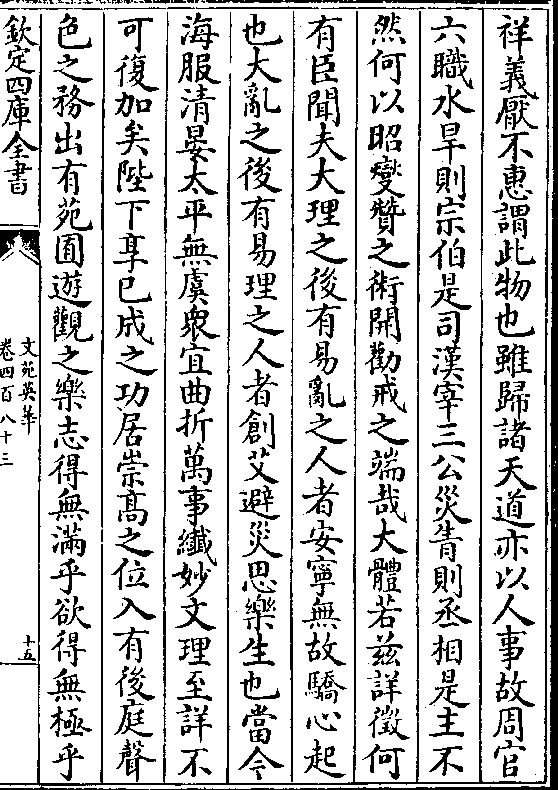 祥義厭不惠謂此物也雖歸諸天道亦以人事故周官
六職水旱則宗伯是司漢宰三公災眚則丞相是主不
然何以昭燮贊之術開勸戒之端哉大體若兹詳徵何
有臣聞夫大理之後有易亂之人者安寧無故驕心起
也大亂之後有易理之人者創艾避災思樂生也當今
海服清晏太平無虞衆宜曲折萬事纖妙文理至詳不
可復加矣陛下享已成之功居崇髙之位入有後庭聲
色之務出有苑囿遊觀之樂志得無滿乎欲得無極乎
欽定四庫全書
文苑英華
卷四百八十三
十五